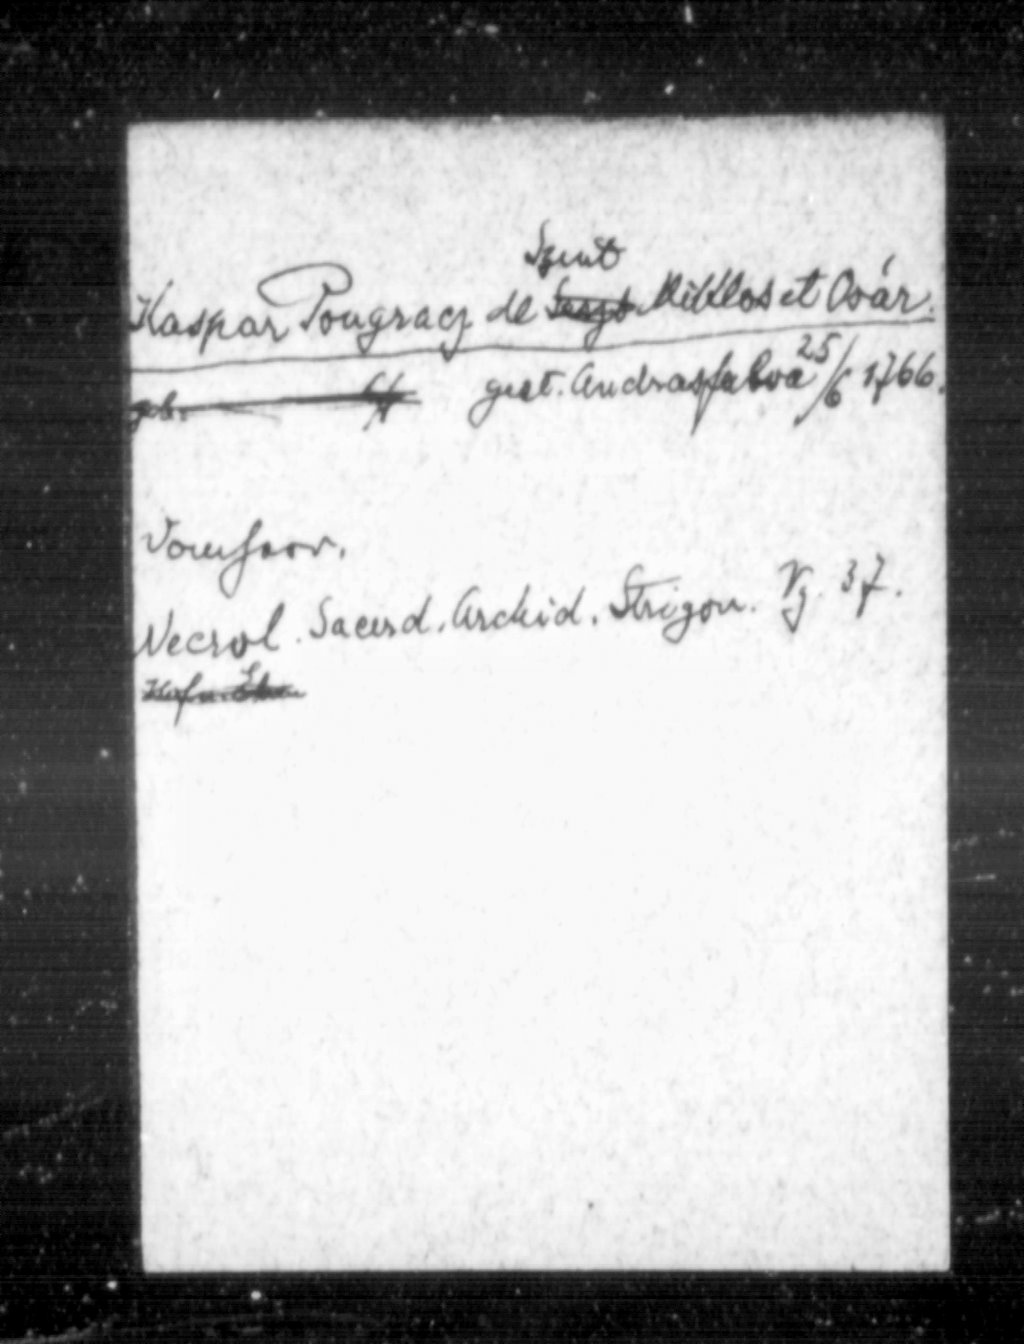 Szent
Kaspar Pongracz de Miklos et Ovár.
geb. gest. Andrasfalva 25/6 1766.
Domherr.
Necrol. Sacerd. Archid. Strigon. Pg. 37.